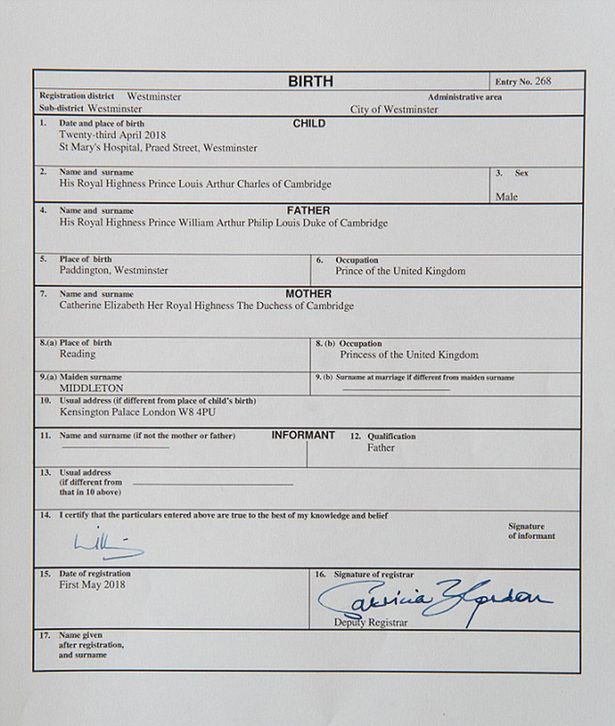 BIRTH
Entry No. 268
Registration district Westminster
Administrative area
Sub-district Westminster
City of Westminster
1. Date and place of birth
CHILD
Twenty-third April 2018
St Mary's Hospital, Praed Street, Westminster
2. Name and surname
His Royal Highness Prince Louis Arthur Charles of Cambridge
3. Sex
Male
4. Name and surname
FATHER
His Royal Highness Prince William Arthur Philip Louis Duke of Cambridge
5. Place of birth
Paddington, Westminster
6. Occupation
Prince of the United Kingdom
7. Name and surname
MOTHER
Catherine Elizabeth Her Royal Highness The Duchess of Cambridge
8.(a) Place of birth
Reading
8. (b) Occupation
Princess of the United Kingdom
9.(a) Maiden surname
MIDDLETON
9. (b) Surname at marriage if different from maiden surname
10. Usual address (if different from place of child's birth)
Kensington Palace London W8 4PU
11. Name and surname (if not the mother or father)
INFORMANT
12. Qualification
Father
13. Usual address
(if different from
that in 10 above)
14. I certify that the particulars entered above are true to the best of my knowledge and belief
Signature
of informant
15. Date of registration
First May 2018
16. Signature of registrar
Deputy Registrar
17. Name given
after registration,
and surname